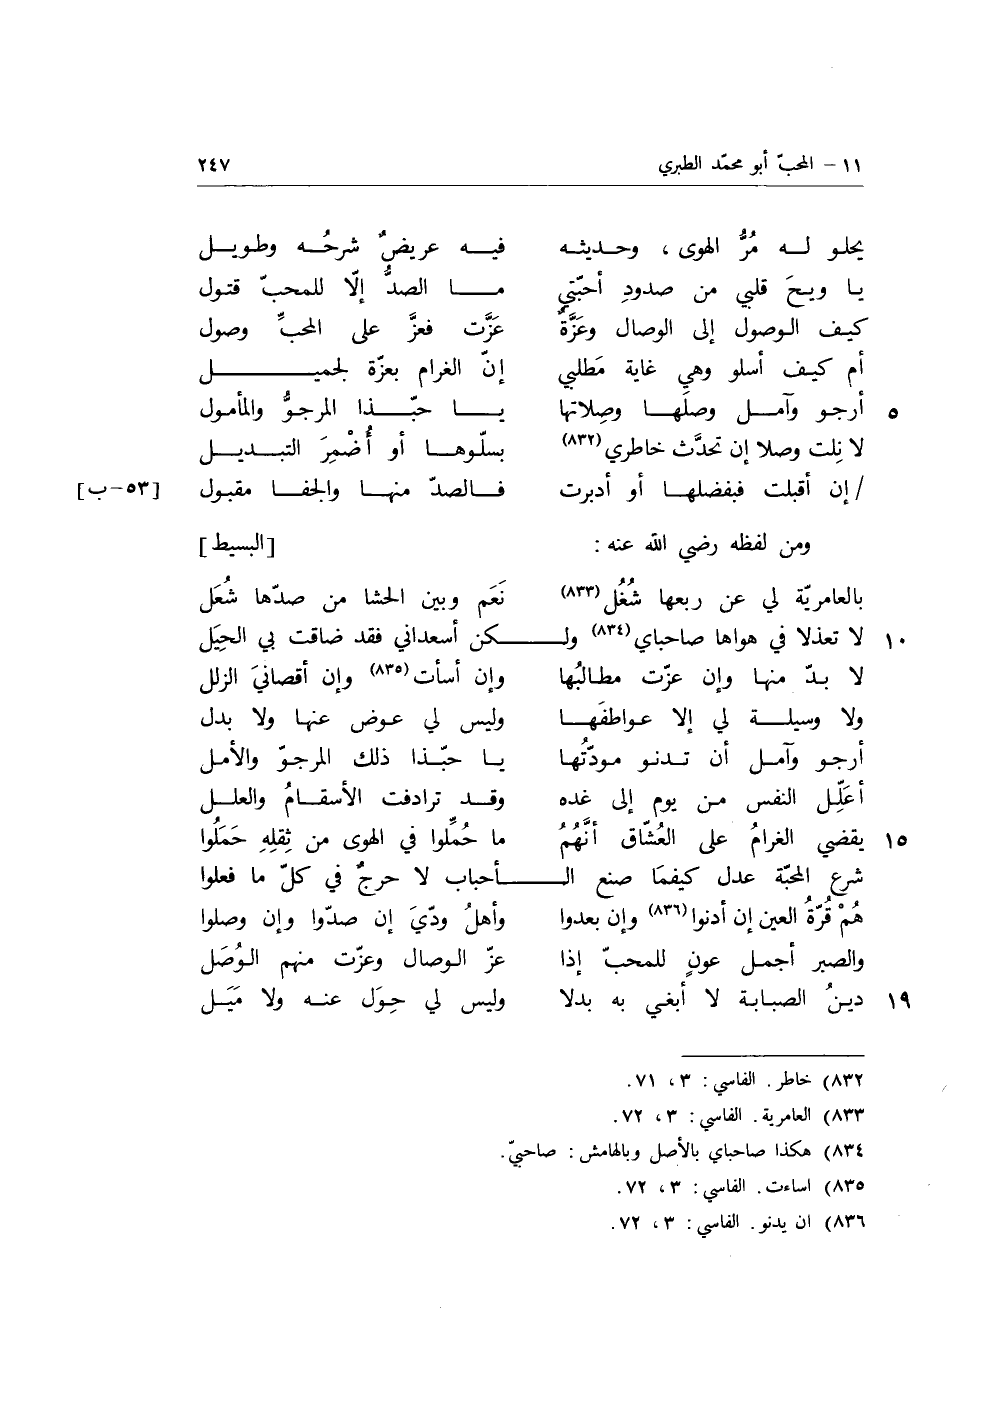 ١١ – المحبّ أبو محمّد الطبري ٢٤٧
يحلو له مُرُّ الهوى ، وحديثه فيه عريضٌ شرحُه وطويل
يا ويحَ قلبي من صدودِ أحبّتي ما الصدُّ إلّا للمحبّ قتول
كيف الوصول إلى الوصال وعَزَّةٌ عَزَّت فعزَّ على المحبِّ وصول
أم كيف أسلو وهي غاية مَطلبي إنّ الغرام بعزّة لجميل
٥ أرجو وآمل وصلَها وصِلاتها يا حبّذا المرجوُّ والمأمول
لا نِلت وصلا إن تحدَّث خاطري (٨٣٢) بسلّوها أو أُضْمِرَ التبديل
/ إن أقبلت فبفضلها أو أدبرت فالصدّ منها والجفا مقبول [٥٣–ب]
ومن لفظه رضي الله عنه : [البسيط]
بالعامريّة لي عن ربعها شُغُل (٨٣٣) نَعَم وبين الحشا من صدّها شُعَل
١٠ لا تعذلا في هواها صاحباي (٨٣٤) ولكن أسعداني فقد ضاقت بي الحِيَل
لا بدّ منها وإن عزّت مطالبُها وإن أسأت (٨٣٥) وإن أقصانيَ الزلل
ولا وسيلة لي إلا عواطفَها وليس لي عوض عنها ولا بدل
أرجو وآمل أن تدنو مودّتُها يا حبّذا ذلك المرجوّ والأمل
أعَلِّل النفس من يوم إلى غده وقد ترادفت الأسقامُ والعلل
١٥ يقضي الغرامُ على العُشّاق أنَّهُمُ ما حُمِّلوا في الهوى من ثِقلِهِ حَمَلُوا
شرع المحبّة عدل كيفمَا صنع الأحباب لا حرجٌ في كلّ ما فعلوا
هُمْ قُرّةُ العين إن أدنوا (٨٣٦) وإن بعدوا وأهلُ ودّيَ إن صدّوا وإن وصلوا
والصبر أجمل عونٍ للمحبّ إذا عزّ الوصال وعزّت منهم الوُصَل
١٩ دينُ الصبابة لا أبغي به بدلا وليس لي حِوَل عنه ولا مَيَل
٨٣٢) خاطر. الفاسي: ٣ ، ٧١.
٨٣٣) العامرية. الفاسي: ٣ ، ٧٢.
٨٣٤) هكذا صاحباي بالأصل وبالهامش : صاحبيّ.
٨٣٥) اساءت. الفاسي: ٣ ، ٧٢.
٨٣٦) ان يدنو. الفاسي: ٣ ، ٧٢.